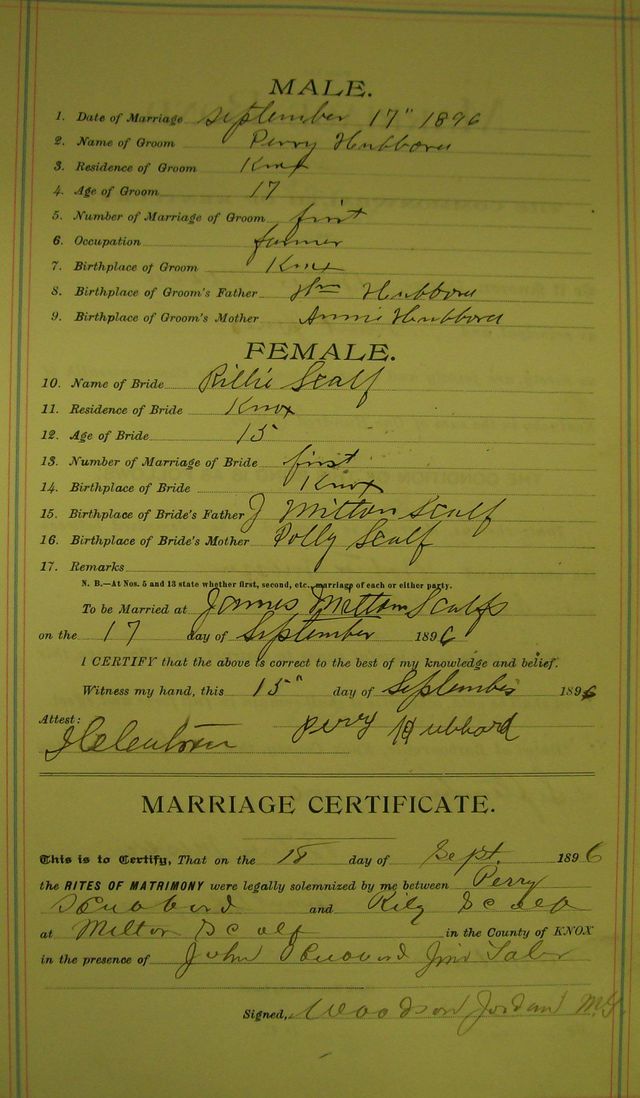 MALE.
1. Date of Marriage September 17" 1896
2. Name of Groom Perry Hubbard
3. Residence of Groom Knox
4. Age of Groom 17
5. Number of Marriage of Groom first
6. Occupation farmer
7. Birthplace of Groom Knox
8. Birthplace of Groom's Father Wm Hubbard
9. Birthplace of Groom's Mother Annie Hubbard
FEMALE.
10. Name of Bride Rillie Scalf
11. Residence of Bride Knox
12. Age of Bride 15
13. Number of Marriage of Bride first
14. Birthplace of Bride Knox
15. Birthplace of Bride's Father J Milton Scalf
16. Birthplace of Bride's Mother Polly Scalf
17. Remarks
N. B.—At Nos. 5 and 13 state whether first, second, etc., marriage of each or either party.
To be Married at James Milton Scalfs
on the 17 day of September 1896
I CERTIFY that the above is correct to the best of my knowledge and belief.
Witness my hand, this 15" day of September 1896
Attest: Perry Hubbard
MARRIAGE CERTIFICATE.
This is to Certify, That on the 18 day of Sept. 1896
the RITES OF MATRIMONY were legally solemnized by me between Perry
and Rily Scalf
at Milton Scalf in the County of KNOX
in the presence of John Jim
Signed, Woodson Jordan M.G.